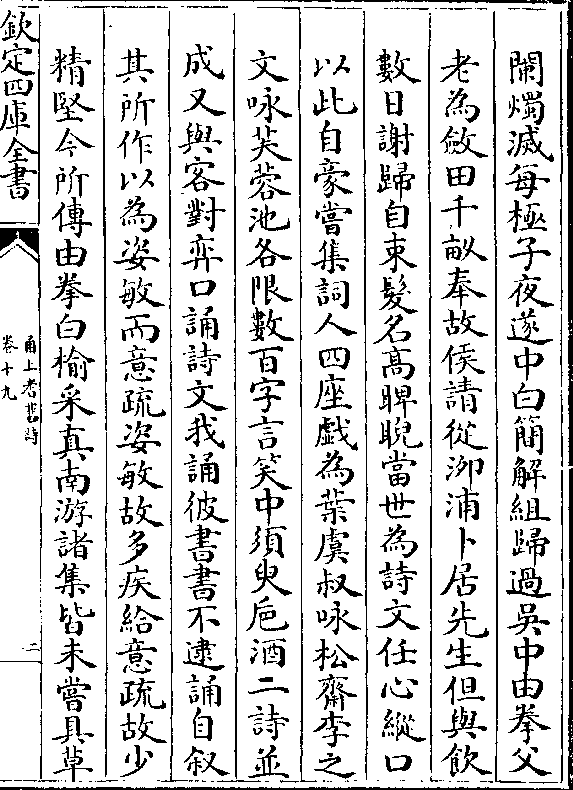 闌燭滅每極子夜遂中白簡解組歸過吳中由拳父
老為斂田千畝奉故侯請從泖浦卜居先生但與飲
數日謝歸自束髮名高睥睨當世為詩文任心縱口
以此自豪嘗集詞人四座戲為葉虞叔咏松齋李之
文咏芙蓉池各限數百字言笑中須臾巵酒二詩並
成又與客對弈口誦詩文我誦彼書書不逮誦自叙
其所作以為姿敏而意疏姿敏故多疾給意疏故少
精堅今所傳由拳白榆采真南游諸集皆未嘗具草
欽定四庫全書
甬上耆舊詩
卷十九
二